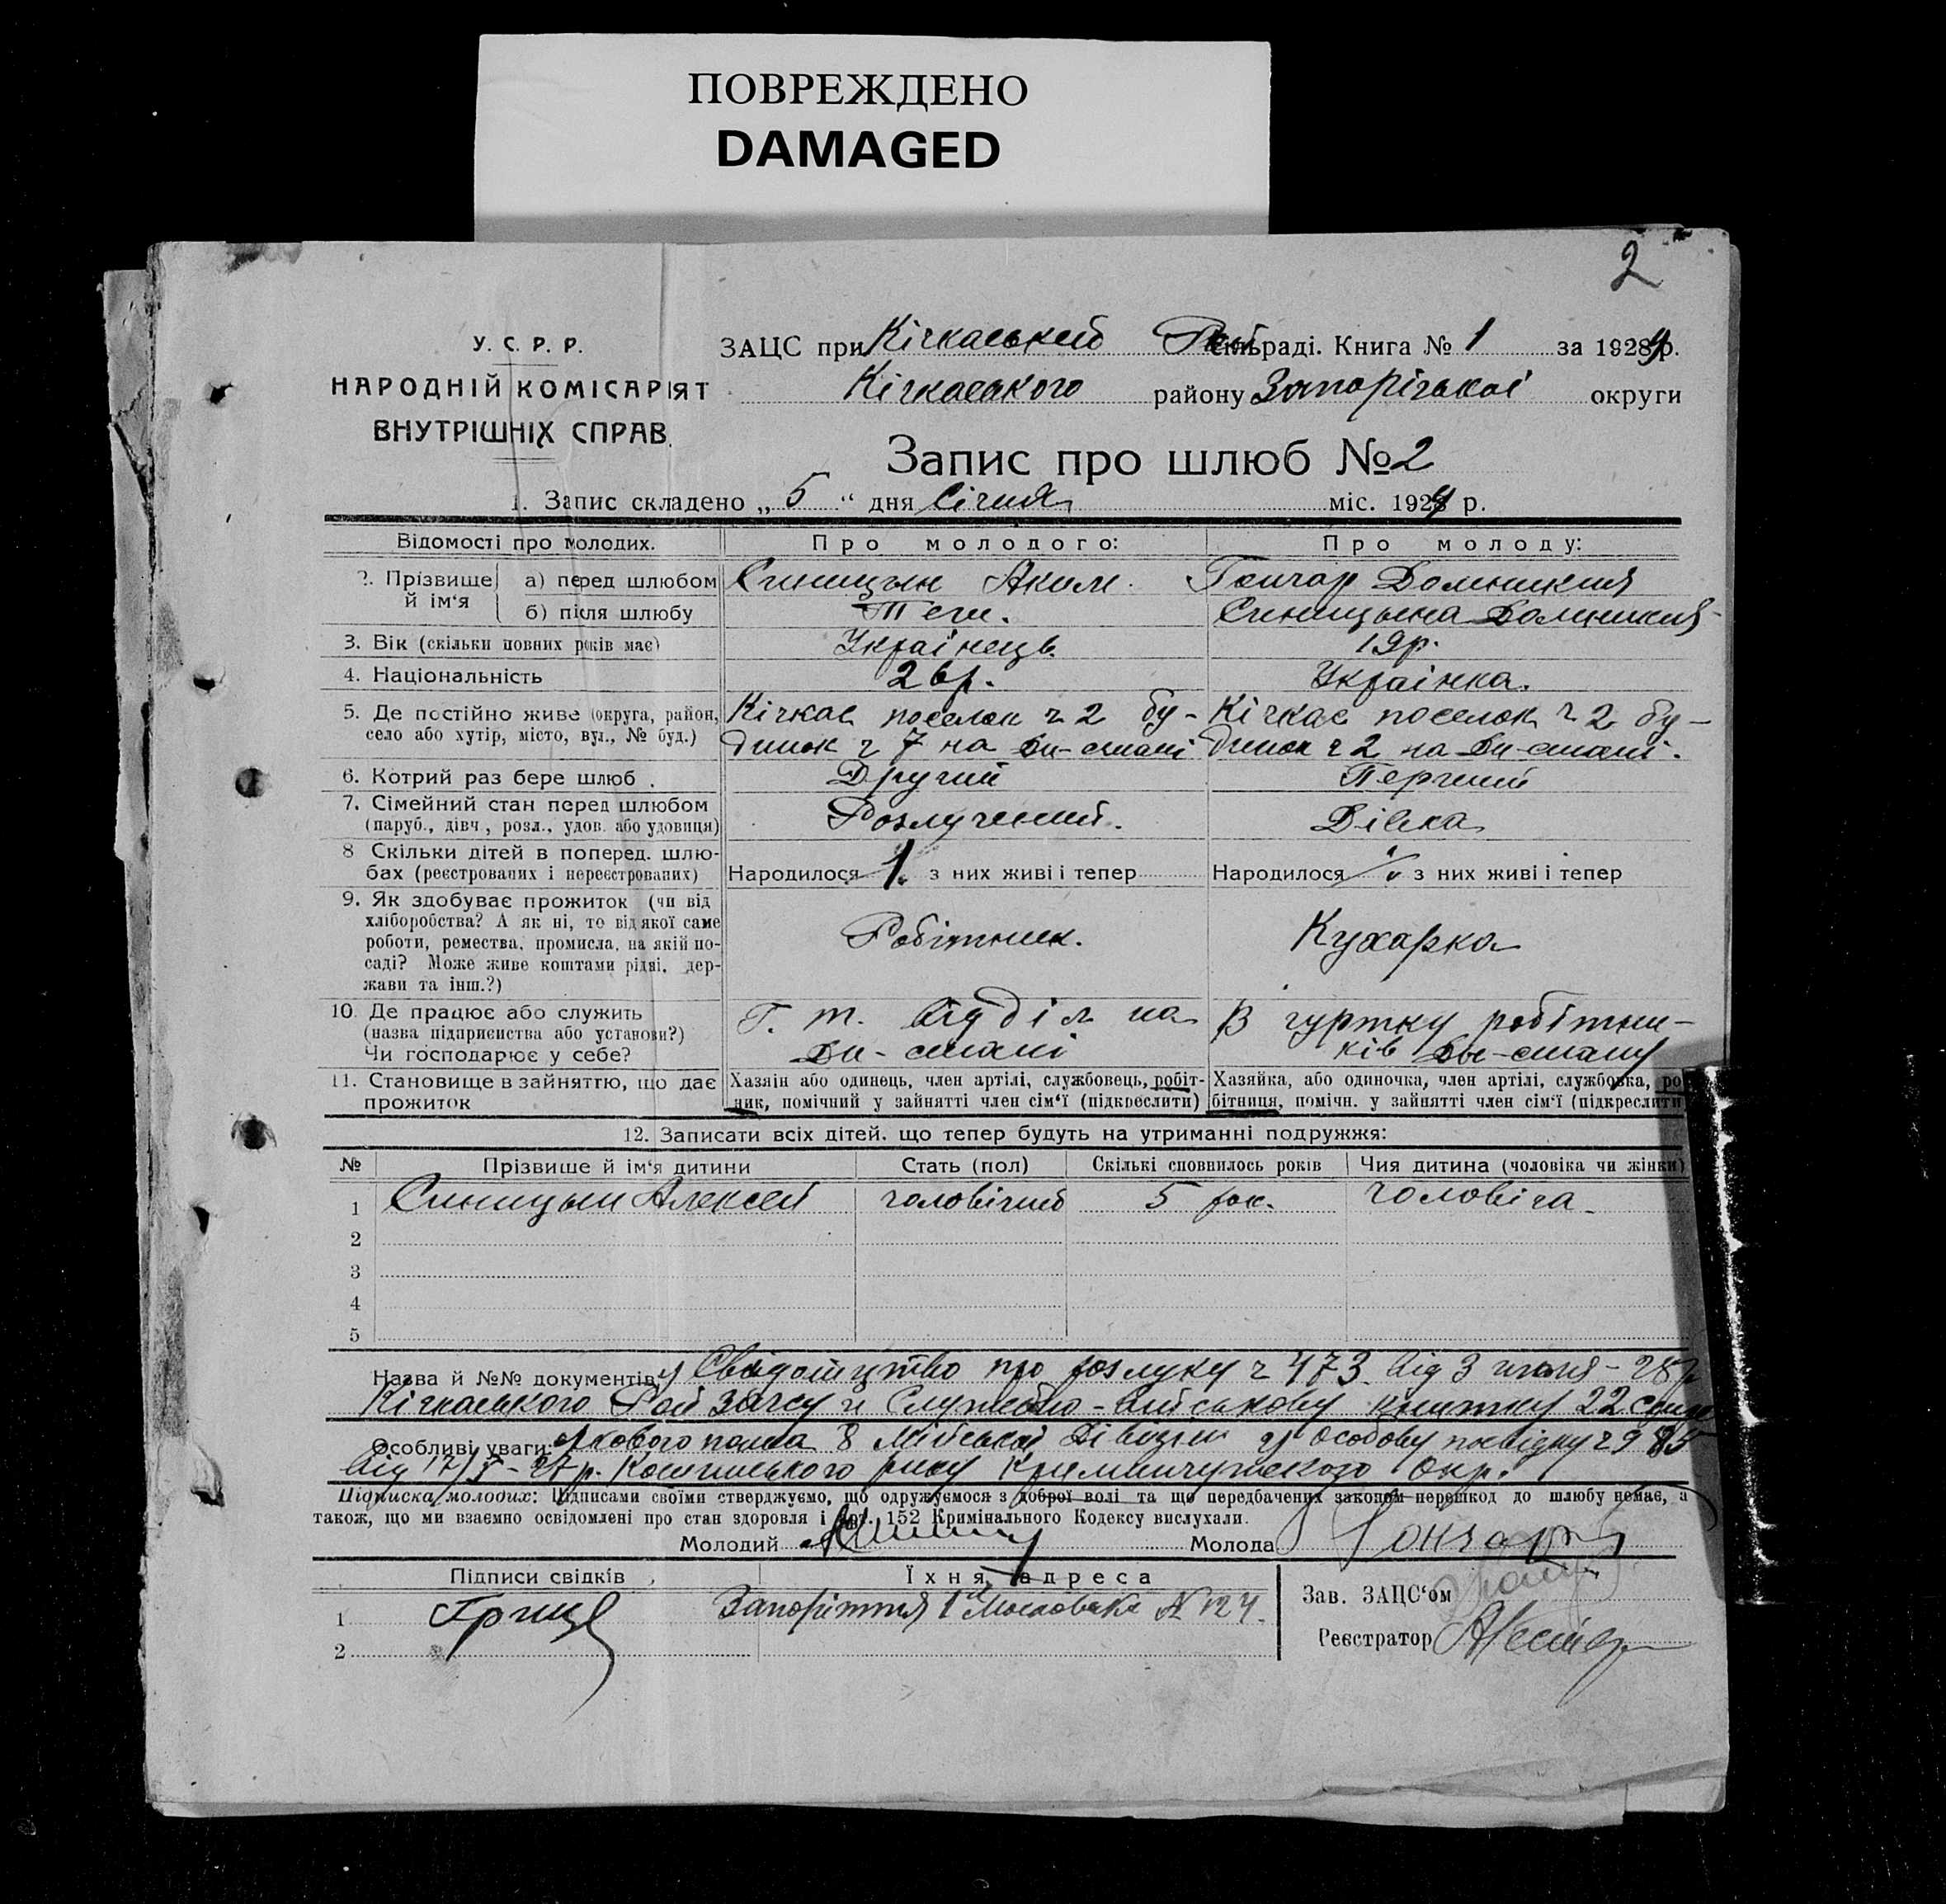 ПОВРЕЖДЕНО
DAMAGED
2
У. С. Р. Р.
НАРОДНІЙ КОМІСАРІЯТ
ВНУТРІШНІХ СПРАВ.
ЗАЦС при Кічкаський Рай сільраді. Книга № 1 за 1929 р.
Кічкаського району Запорізької округи
Запис про шлюб № 2
1. Запис складено „ 5 “ дня Січня міс. 1929 р.
Відомості про молодих. Про молодого: Про молоду:
2. Прізвище й ім‘я а) перед шлюбом Синицын Аким. Гончар Домникия
б) після шлюбу Теж. Синицына Домникия
3. Вік (скільки повних років має) Українець 19р.
4. Національність 26р. Українка.
5. Де постійно живе (округа, район, Кічкас поселок ч 2 бу- Кічкас поселок ч 2 бу-
село або хутір, місто, вул., № буд.) динок ч 7 на Дн-стані динок ч 2 на Дн-стані.
6. Котрий раз бере шлюб . Другий Перчий
7. Сімейний стан перед шлюбом
(паруб., дівч., розл., удов. або удовиця) Розлучений. Дівка
8 Скільки дітей в поперед. шлю-
бах (реєстрованих і нереєстрованих) Народилося 1. з них живі і тепер Народилося з них живі і тепер
9. Як здобуває прожиток (чи від
хліборобства? А як ні, то від якої саме
роботи, ремества, промисла, на якій по- Робітник. Кухарка
саді? Може живе коштами рідні, дер-
жави та інш.?)
10. Де працює або служить Г. т. відділ на В гуртку робітни-
(назва підприємства або установи?)
Чи господарює у себе? Дн-стані ків Дн-стану
11. Становище в зайняттю, що дає Хазяін або одинець, член артілі, службовець, робіт- Хазяйка, або одиночка, член артілі, службовка, ро
прожиток ник, помічний у зайнятті член сім‘ї (підкреслити) бітниця, помічн. у зайнятті член сім‘ї (підкреслити
12. Записати всіх дітей, що тепер будуть на утриманні подружжя:
№ Прізвище й ім‘я дитини Стать (пол) Скількі сповнилось років Чия дитина (чоловіка чи жінки)
1 Синицын Алексей чоловічий 5 рок. чоловіча
2
3
4
5
Назва й №№ документів: Свідоцтво про розлуку ч 473 від 3 28р
Кічкаського Рай Загсу й Службово-військову книжку 22
Особливі уваги: 8 Дівізии й особову посвідку
від 17/ - 27р. району Окр.
Підписка молодих: Підписами своїми стверджуємо, що одружуємося з доброї волі та що передбачених законом перешкод до шлюбу немає, а
також, що ми взаємно освідомлені про стан здоровля і арт. 152 Кримінального Кодексу вислухали.
Молодий Молода Гончар
Підписи свідків Їхня адреса
Зав. ЗАЦС‘ом
1 Гриц Запоріжжя 1 Московська № 124.
Реєстратор
2